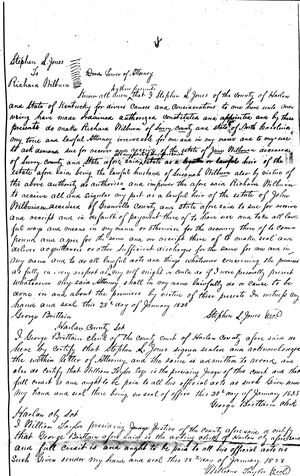 Stephen L Jones
To
Richard Wilburn
Power of Attorney
by these presents
Know all men that I Stephen L Jones of the County of Harlan
and State of Kentucky for divers causes and considerations to me here unto
moving have made ordained authorized constituted and appointed and by these
presents do make Richard Wilburn of Surry county and State of North Carolina
my true and lawful Attorney for me and in my name and to my use
to ask demand sue for recover and receive of the estate of Wilburn deceased
of Surry county and State afore said as a lawful heir of the
estate afore said being the lawful husband of Wilburn and by virtue of
the above authority do authorize and empower the afore said Richard Wilburn
to receive all and singular my part as a lawful heir of the estate of John
Wilburn of Granville County and state afore said to sue for recover
and receipt and in default of payment there of to have use and take all law
ful ways and means in my name or otherwise for the recovery there of to com
pound and agree for the same and on receipt there of to make seal and
deliver acquittances or other sufficient discharge for the same for me and in
my name and to do all lawful acts and things whatsoever concerning the premises
as fully in every respect as my self might or could do if I were personally present
whatsoever my said Attorney shall in my name lawfully do or cause to be
done in and about the premises by virtue of these presents In witness my
hand and seal this 25th day of January 1838
George Brittain
Stephen L Jones Seal
Harlan County Sct
I George Brittain clerk of the county court of Harlan County afore said do
here by certify that Stephen L Jones signed sealed and acknowledged
the within letter of Attorney and the same is admitted to record and
also do certify that William Taylor is the presiding Judge of this court and that
full credit is and ought to be paid to all his official acts as such Given under
my hand and seal there being no seal of office this 25th day of January 1838
George Brittain clerk
Harlan cty Sct
I William Taylor presiding Judge of the county afore said do certify
that George Brittain afore said is the acting clerk of Harlan cty afore said
and full credit is and ought to be paid to all his official acts as
such Given under my hand and seal this 25 day of January 1838
William Taylor Seal